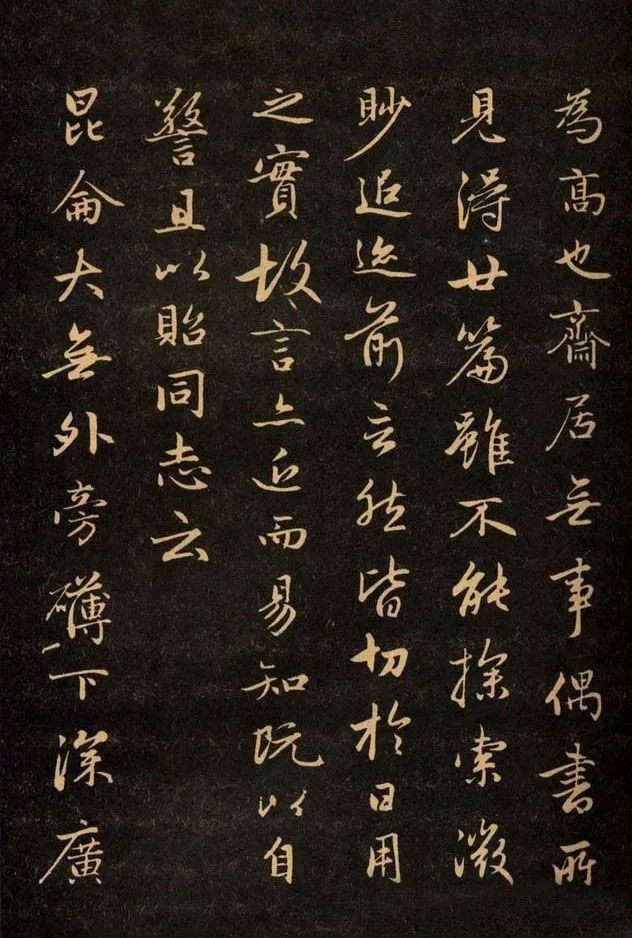 為高也齋居无事偶書所
見得廿篇雖不能探索微
眇追迹前言然皆切於日用
之實故言亦近而易知既以自
警且以貽同志云
昆侖大無外旁礴下深廣